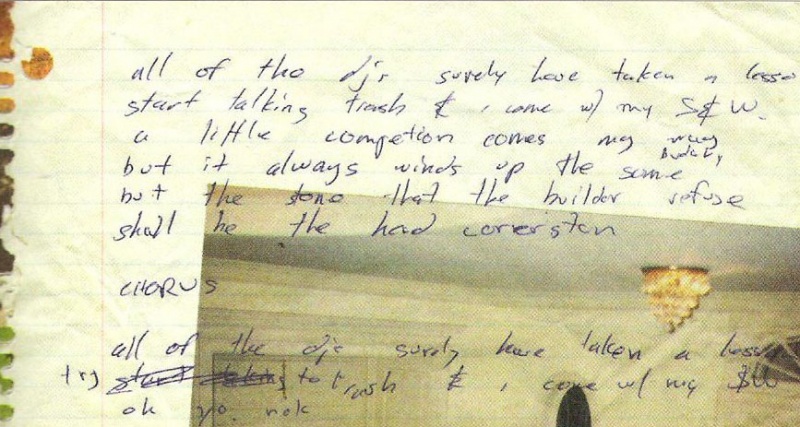 all of the djs surely have taken a lesso
start talking trash & i come w/ my S&W.
a little competion comes my way
but it always winds up the same
but the stone that the builder refuse
shall be the head conerston
CHORUS
all of the djs surely have taken a lesso
try to trash & i come w/ my S&W
ok yo